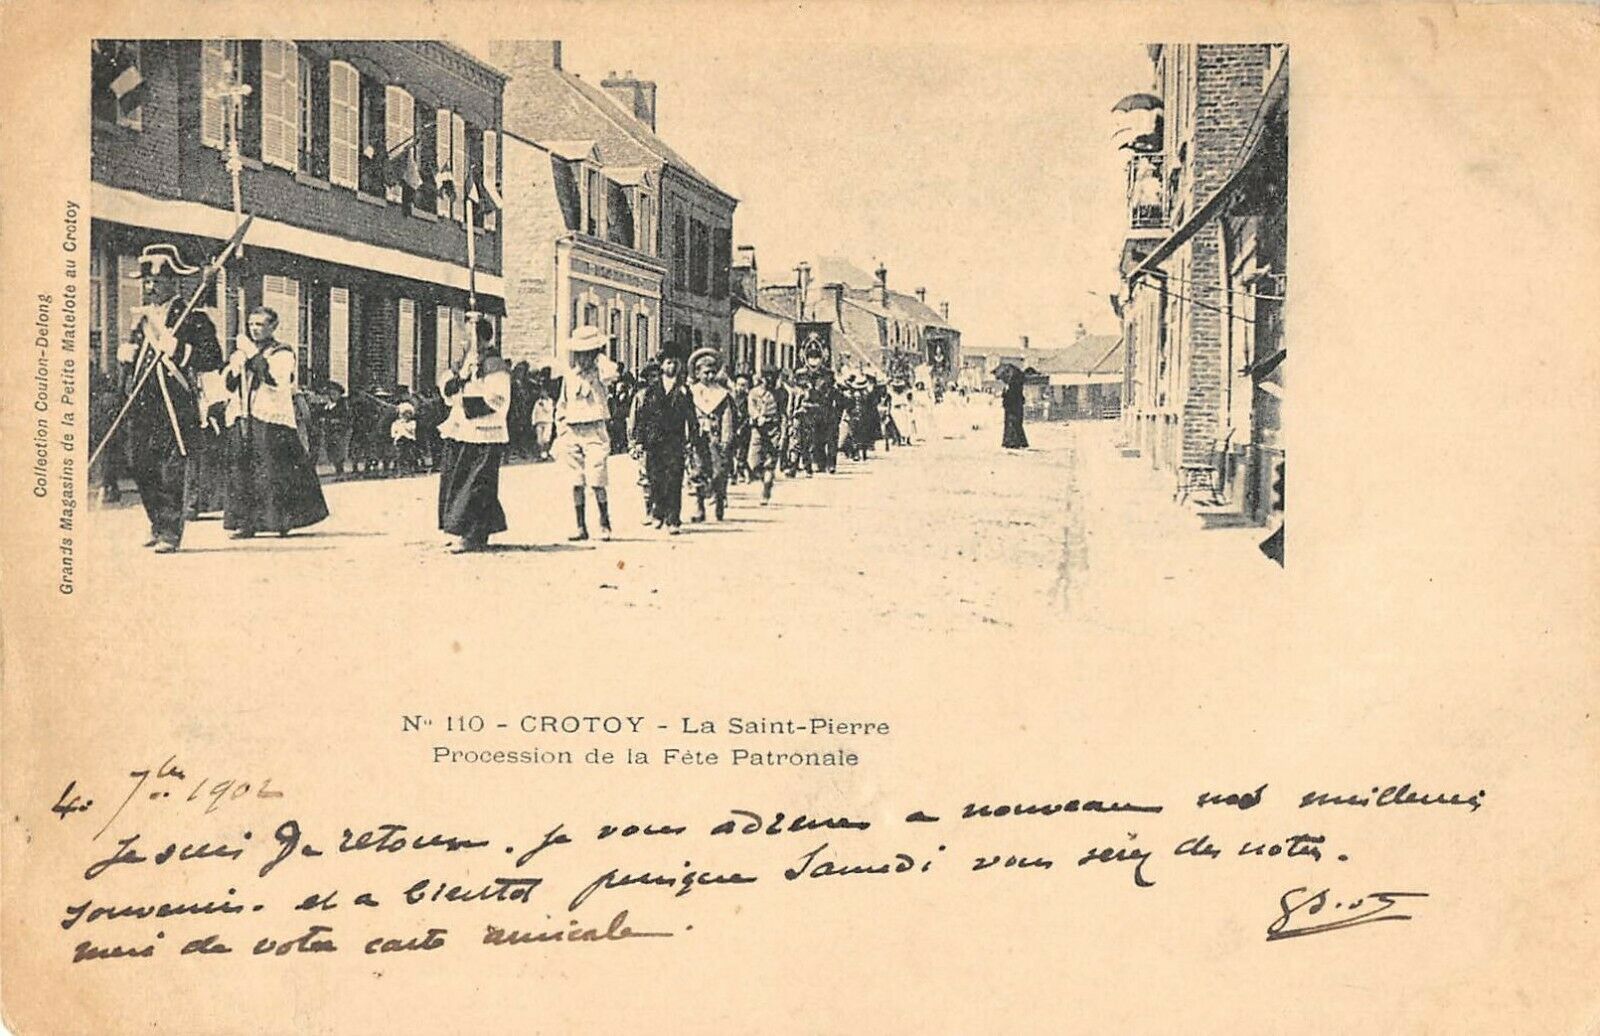 Collection Coulon-Delong
Grands Magasins de la Petite Matelote au Crotoy
No 110 - CROTOY - La Saint-Pierre
Procession de la Fête Patronale
4. 7bre 1902
Je suis de retour. Je vous adresse a nouveau mes meilleurs
souvenirs. et a bientot puisque Samedi vous serez des notres.
merci de votre carte amicale.